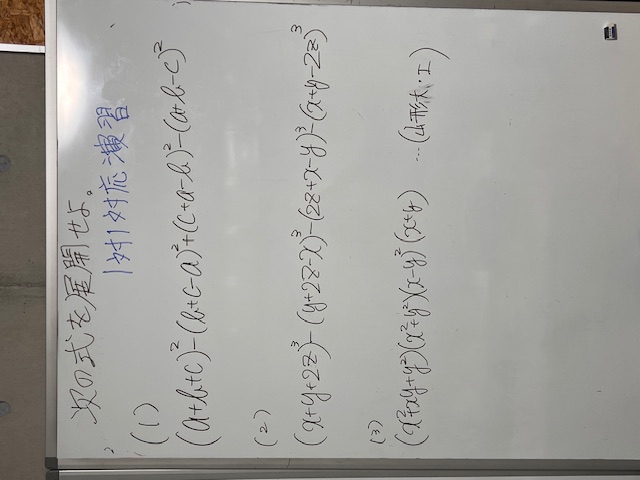 次の式を展開せよ。
1対1対応演習
(1)
(a+b+c)²-(b+c-a)²+(c+a-b)²-(a+b-c)²
(2)
(x+y+2z)³-(y+2z-x)³-(2z+x-y)³-(x+y-2z)³
(3)
(x²+xy+y²)(x²+y²)(x-y)²(x+y) …(山形大・工)